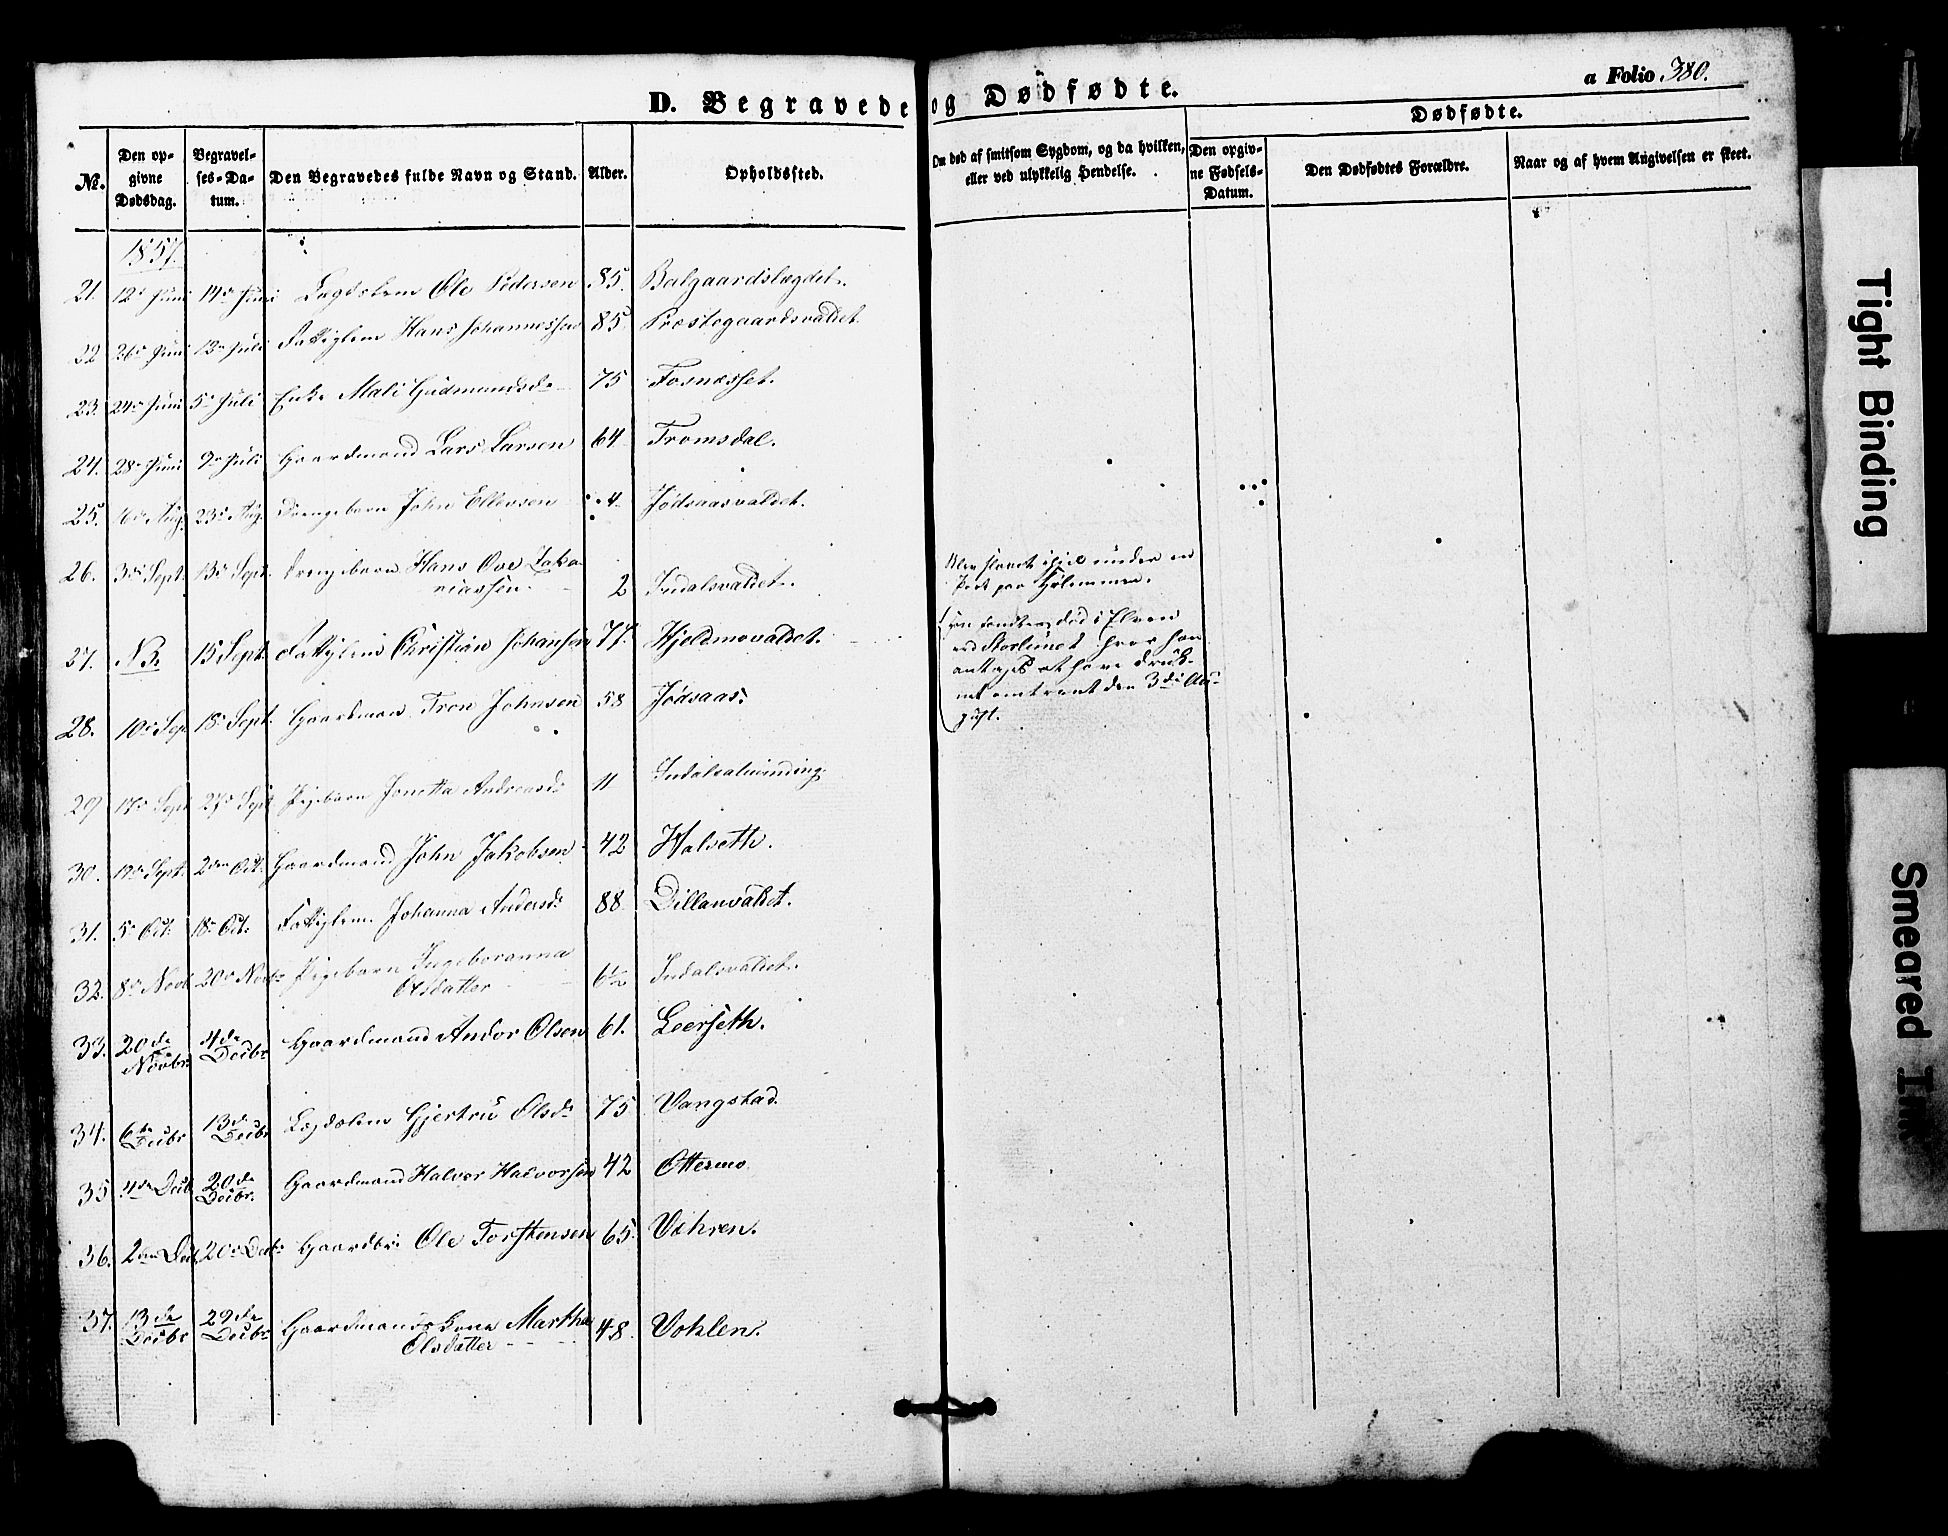 D. Begravede og Dødfødte.
a Folio 380.
Dødfødte.
№.
Den opgivne Dødsdag.
Begravelses-Datum.
Den Begravedes fulde Navn og Stand.
Alder.
Opholdssted.
Om død af smitsom Sygdom, og da hvilken, eller ved ulykkelig Hendelse.
Den opgivne Fødsels-Datum.
Den Dødfødtes Forældre.
Naar og af hvem Angivelsen er skeet.
1857.
21. 12te Juni 14de Juni Lægdslem Ole Pedersen 85. Balgaardslægdet.
22 26de Juni 13de Juli Fattiglem Hans Johannessen 85 Præstegaardsvaldet.
23. 24de Juni 5te Juli Enke Mali Gudmundsdr 75 Fosnæsset.
24. 28de Juni 9de Juli Gaardmand Lars Larsen 64 Tromsdal.
25. 16de Aug. 23de Aug. Drengebarn John Ellevsen 4 Jødsaasvaldet.
26. 3die Sept. 13de Sept. Drengebarn Hans Ove Zakariassen 2 Indalsvaldet. Blev slaaet ihjel under en Port paa
27. NB. 15 Sept. Fattiglem Christian Johansen 77. Hjeldmovaldet. død i Elven ved Storlunet hvor han antages at have druknet omtrent den 3die August.
28. 10de Sep 18 Sept. Gaardmand Tron Johnsen 58 Jødsaas.
29 17de Sept 27de Sept Pigebarn Jonetta Andreasdr 11 Indalsalminding
30. 19de Sept. 2den Oct. Gaardmand John Jakobsen 42 Halseth.
31. 5te Oct. 18de Oct. Fattiglem Johanna Andersdr 88 Dillanvaldet.
32. 8de Novb 20de Novbr Pigebarn Ingeboranna Olsdatter 6½ Indalsvaldet.
33. 20de Novbr. 4de Decbr Gaardmand Andor Olsen 61. Leerseth.
34. 6te Decbr 13de Decbr Lægdslem Gjertru Olsdr 75 Vangstad.
35 4de Decb 20de Decbr. Gaardmand Halvor Halvorsen 42 Ottermo
36. 2den Dec 20de Decbr Gaardbr. Ole Torstensen 65.
37. 13de Decbr 29de Decbr Gaardmandskone Martha Olsdatter 48. Vohlen.
Tight Binding
Smeared Ink